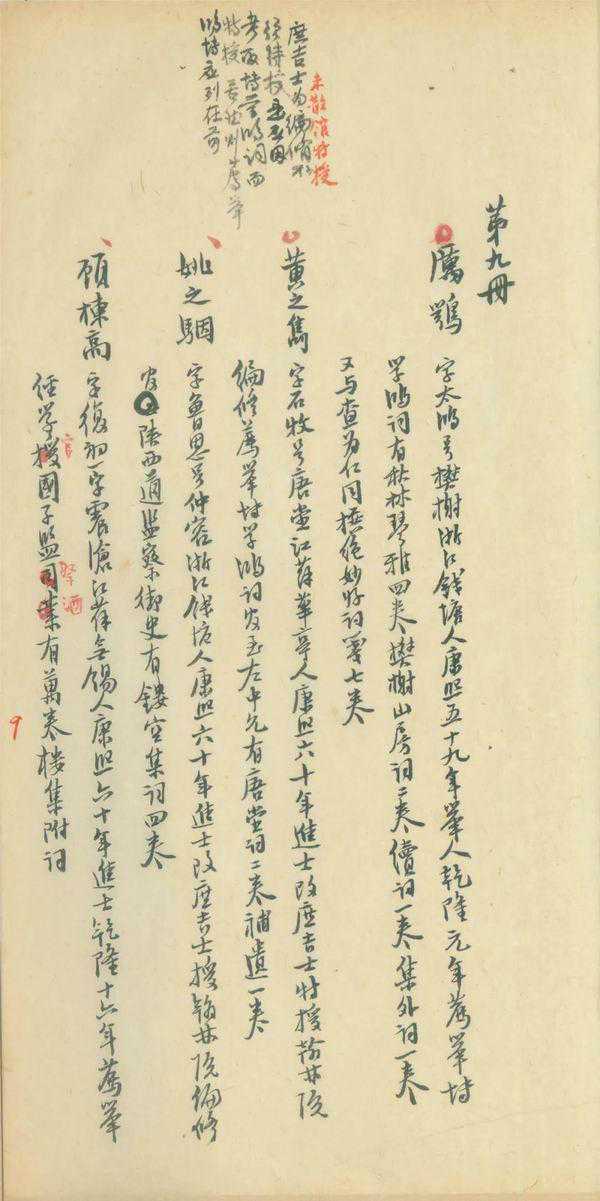 第九冊
未散館特授
庶吉士为編脩
考取博学鴻词而
特授 若然則薦舉
鴻博应列在前
厲鶚 字太鴻号樊榭浙江錢塘人康熙五十九年舉人乾隆元年薦舉博
学鴻词有秋林琴雅四卷樊榭山房词二卷續词一卷集外词一卷
又与查为仁同撰絕妙好词箋七卷
黄之雋 字石牧号唐堂江蘇華亭人康熙六十年進士改庶吉士特授翰林院
編修薦舉博学鴻词官至左中允有唐堂词二卷補遺一卷
姚之駰 字魯思号仲容浙江錢塘人康熙六十年進士改庶吉士授翰林院編修
官陕西道監察御史有鏤空集词四卷
顾棟高 字復初一字震滄江蘇無錫人康熙六十年進士乾隆十六年薦舉
經学授國子監司業有萬卷楼集附词
祭酒
9